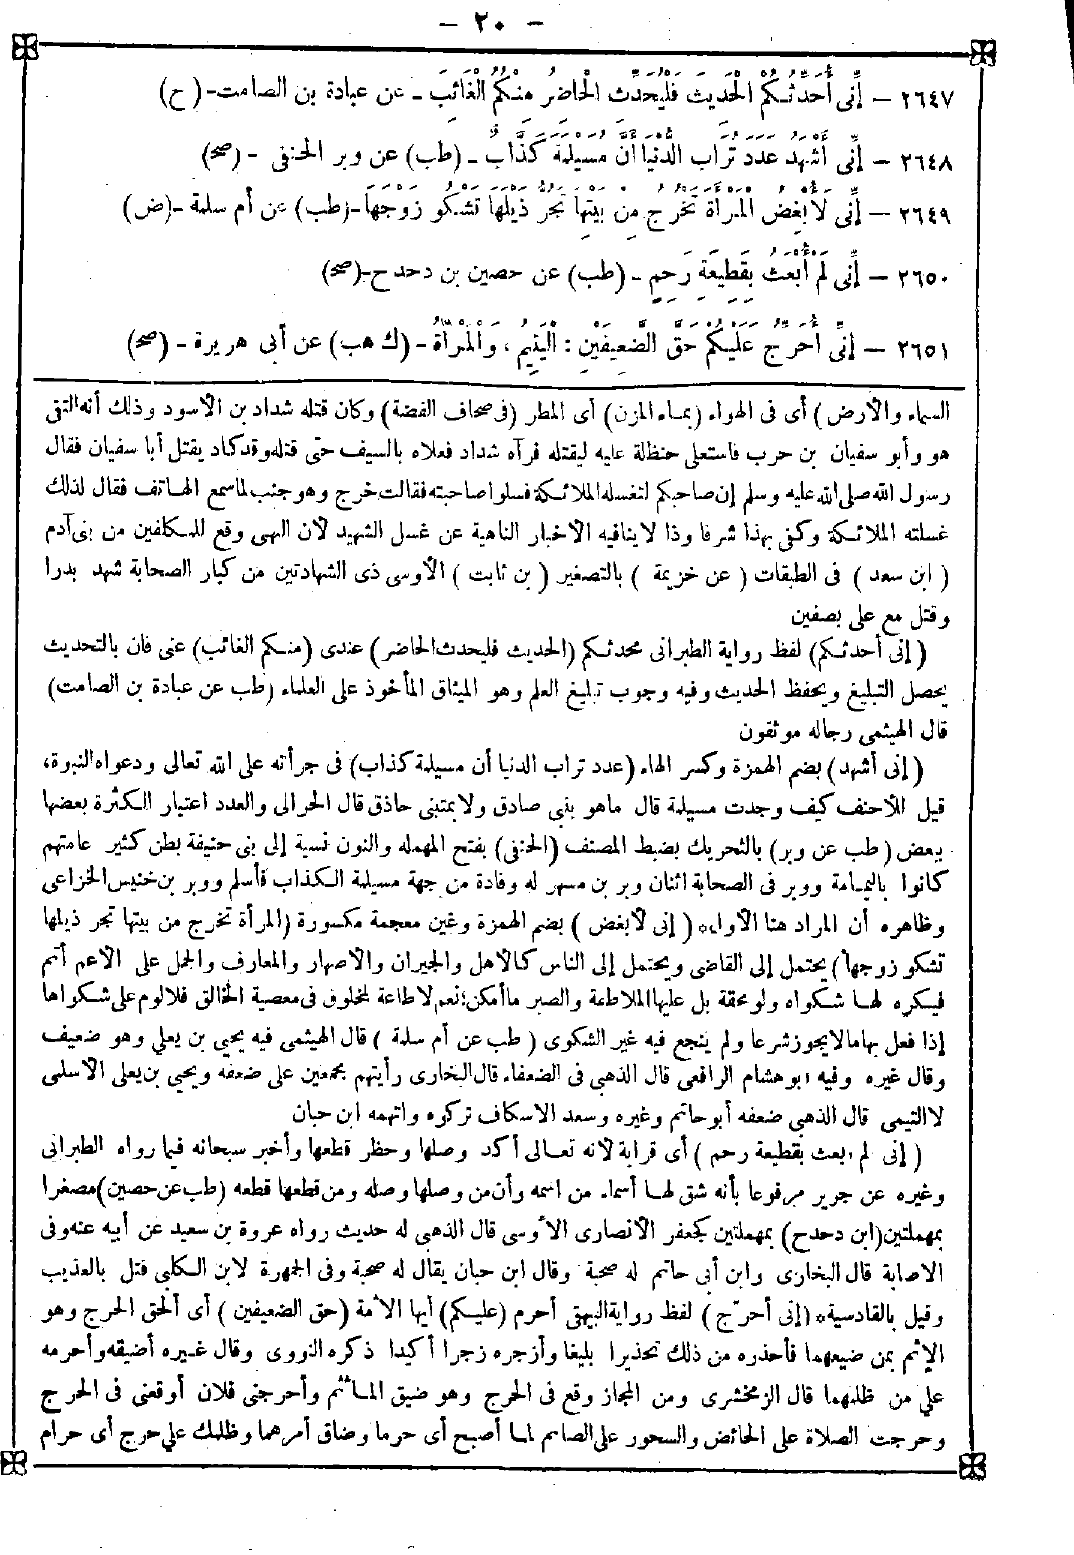 - ٢٠ -
٢٦٤٧ - إِنِّى أُحَدِّثُكُمُ الْحَدِيثَ فَلْيُحَدِّثِ الْحَاضِرُ مِنْكُمُ الْغَائِبَ - عن عبادة بن الصامت - (ح)
٢٦٤٨ - إِنِّى أُشْهِدُ عَدَدَ تُرَابِ الدُّنْيَا أَنَّ مُسَيْلِمَةَ كَذَّابٌ - (طب) عن وبر الحنفى - (صح)
٢٦٤٩ - إِنِّى لَأُبْغِضُ الْمَرْأَةَ تَخْرُجُ مِنْ بَيْتِهَا تَجُرُّ ذَيْلَهَا تَشْكُو زَوْجَهَا - (طب) عن أم سلمة - (ض)
٢٦٥٠ - إِنِّى لَمْ أُبْعَثْ بِقَطِيعَةِ رَحِمٍ - (طب) عن حصين بن دحدح - (صح)
٢٦٥١ - إِنِّى أُحَرِّجُ عَلَيْكُمْ حَقَّ الضَّعِيفَيْنِ : الْيَتِيمُ ، وَالْمَرْأَةُ - (ك هب) عن أبى هريرة - (صح)
السماء والأرض) أى فى الهواء (بماء المزن) أى المطر (فى صحاف الفضة) وكان قتله شداد بن الأسود وذلك أنه التقى
هو وأبو سفيان بن حرب فاستعلى حنظلة عليه ليقتله فرآه شداد فعلاه بالسيف حتى قتله وقد كاد يقتل أبا سفيان فقال
رسول الله صلى الله عليه وسلم إن صاحبكم لتغسله الملائكة فسلوا صاحبته فقالت خرج وهو جنب لما سمع الهاتف فقال لذلك
غسلته الملائكة وكفى بهذا شرفا وذا لا ينافيه الأخبار الناهية عن غسل الشهيد لأن النهى وقع للمكلفين من بنى آدم
( ابن سعد ) فى الطبقات ( عن خزيمة ) بالتصغير ( بن ثابت ) الأوسى ذى الشهادتين من كبار الصحابة شهد بدرا
وقتل مع على بصفين
( إنى أحدثكم) لفظ رواية الطبرانى محدثكم (الحديث فليحدث الحاضر) عندى (منكم الغائب) عنى فان بالتحديث
يحصل التبليغ ويحفظ الحديث وفيه وجوب تبليغ العلم وهو الميثاق المأخوذ على العلماء (طب عن عبادة بن الصامت)
قال الهيثمى رجاله موثقون
( إنى أشهد) بضم الهمزة وكسر الهاء (عدد تراب الدنيا أن مسيلمة كذاب) فى جرأته على الله تعالى ودعواه النبوة،
قيل للأحنف كيف وجدت مسيلمة قال ماهو بنبى صادق ولا بمتنبى حاذق قال الحرالى والعدد اعتبار الكثرة بعضها
ببعض ( طب عن وبر) بالتحريك بضبط المصنف (الحنفى) بفتح المهملة والنون نسبة إلى بنى حنيفة بطن كثير عامتهم
كانوا باليمامة ووبر فى الصحابة اثنان وبر بن مسهر له وفادة من جهة مسيلمة الكذاب فأسلم ووبر بن خنيس الخزاعى
وظاهره أن المراد هنا الأول* ( إنى لأبغض ) بضم الهمزة وغين معجمة مكسورة (المرأة تخرج من بيتها تجر ذيلها
تشكو زوجها) يحتمل إلى القاضى ويحتمل إلى الناس كالأهل والجيران والأصهار والمعارف والحمل على الأعم أتم
فيكره لها شكواه ولو محقة بل عليها الملاطفة والصبر ما أمكن؛ نعم لا طاعة لمخلوق فى معصية الخالق فلا لوم على شكواها
إذا فعل بها مالا يجوز شرعا ولم ينجع فيه غير الشكوى ( طب عن أم سلمة ) قال الهيثمى فيه يحيى بن يعلى وهو ضعيف
وقال غيره وفيه أبو هشام الرافعى قال الذهبى فى الضعفاء قال البخارى رأيتهم مجمعين على ضعفه ويحيى بن يعلى الأسلمى
لا التيمى قال الذهبى ضعفه أبو حاتم وغيره وسعد الاسكاف تركوه واتهمه ابن حبان
( إنى لم أبعث بقطيعة رحم ) أى قرابة لأنه تعالى أكد وصلها وحظر قطعها وأخبر سبحانه فيما رواه الطبرانى
وغيره عن جرير مرفوعا بأنه شق لها أسماء من اسمه وأن من وصلها وصله ومن قطعها قطعه (طب عن حصين) مصغرا
بمهملتين (ابن دحدح) بمهملتين كجعفر الأنصارى الأوسى قال الذهبى له حديث رواه عروة بن سعيد عن أبيه عنه وفى
الاصابة قال البخارى وابن أبى حاتم له صحبة وقال ابن حبان يقال له صحبة وفى الجمهرة لابن الكلبى قتل بالعذيب
وقيل بالقادسية* (إنى أحرّج ) لفظ رواية البيهقى أحرم (عليكم) أيها الأمة (حق الضعيفين ) أى ألحق الحرج وهو
الإثم بمن ضيعهما فأحذره من ذلك تحذيرا بليغا وأزجره زجرا أكيدا ذكره النووى وقال غيره أضيقه وأحرمه
على من ظلمهما قال الزمخشرى ومن المجاز وقع فى الحرج وهو ضيق المأثم وأحرجنى فلان أوقعنى فى الحرج
وحرجت الصلاة على الحائض والسحور على الصائم لما أصبح أى حرما وضاق أمرهما وظلمك على حرج أى حرام